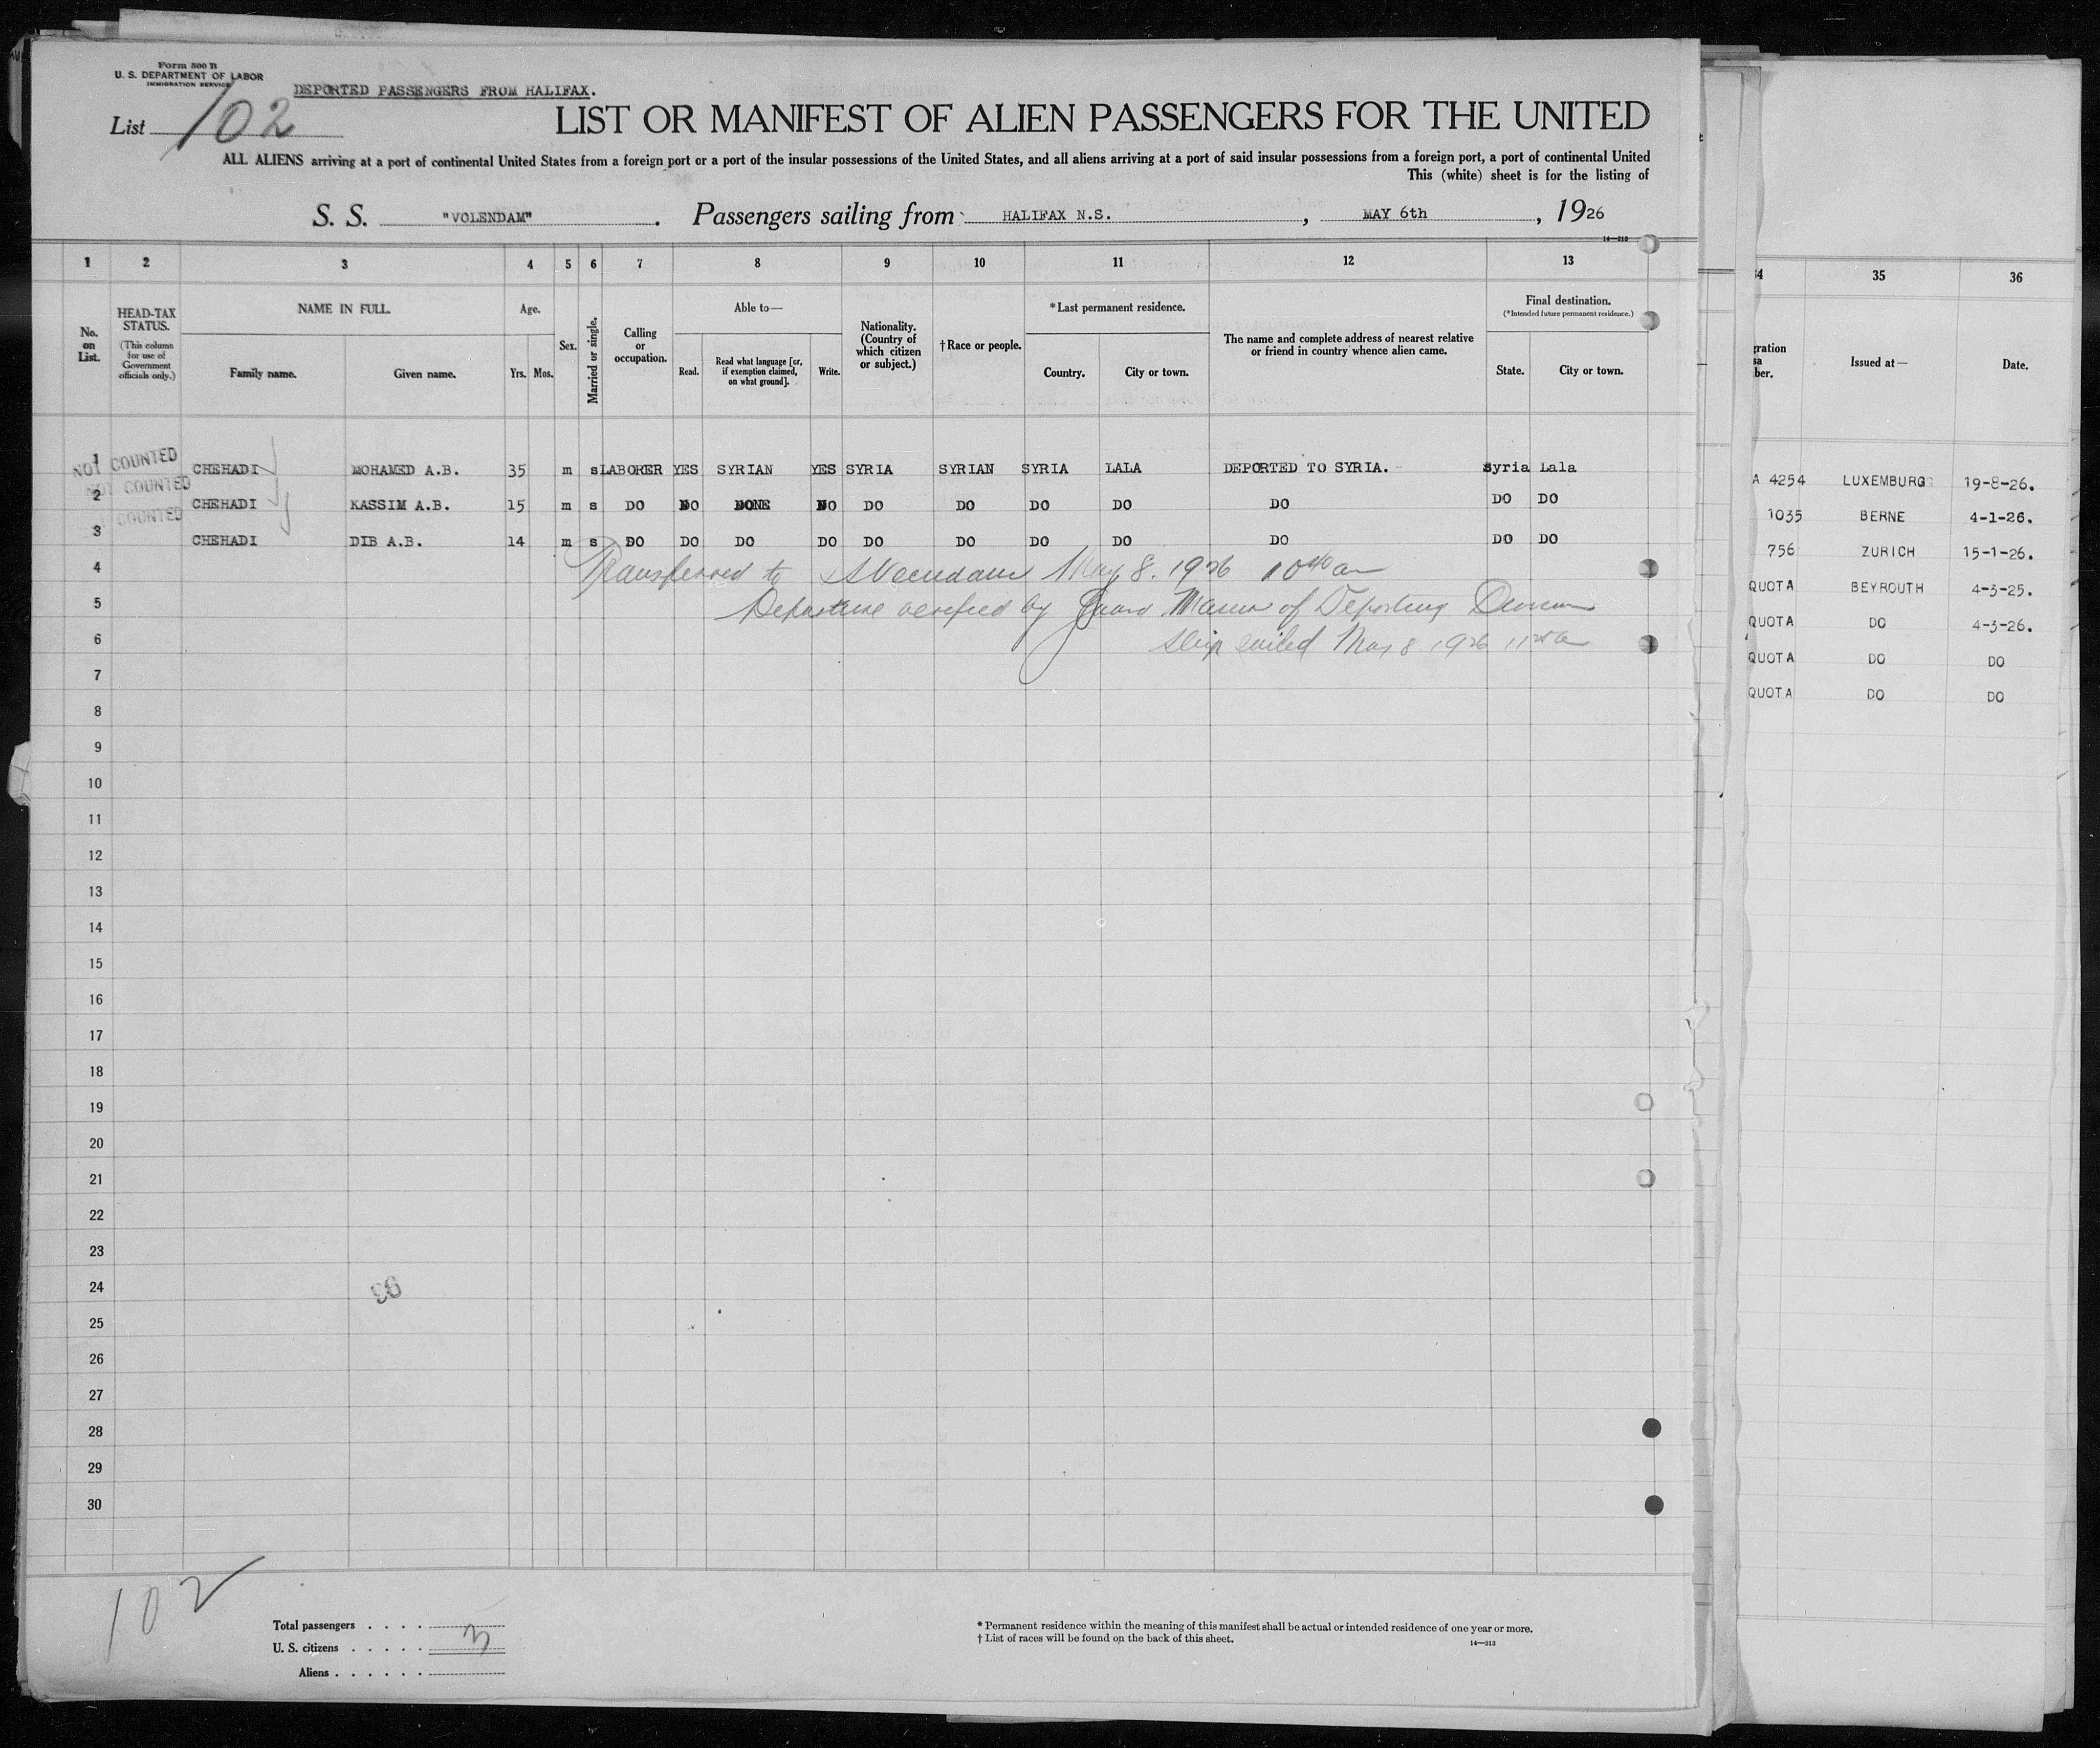 Form 500 B
U. S. DEPARTMENT OF LABOR
IMMIGRATION SERVICE
DEPORTED PASSENGERS FROM HALIFAX.
List 102
LIST OR MANIFEST OF ALIEN PASSENGERS FOR THE UNITED
ALL ALIENS arriving at a port of continental United States from a foreign port or a port of the insular possessions of the United States, and all aliens arriving at a port of said insular possessions from a foreign port, a port of continental United
This (white) sheet is for the listing of
S. S. "VOLENDAM". Passengers sailing from HALIFAX N.S., MAY 6th, 1926
14—213
1 2 3 4 5 6 7 8 9 10 11 12 13
No. on List.
HEAD-TAX STATUS.
(This column for use of Government officials only.)
NAME IN FULL.
Family name. Given name.
Age.
Yrs. Mos.
Sex.
Married or single.
Calling or occupation.
Able to—
Read. Read what language [or, if exemption claimed, on what ground]. Write.
Nationality. (Country of which citizen or subject.)
†Race or people.
*Last permanent residence.
Country. City or town.
The name and complete address of nearest relative or friend in country whence alien came.
Final destination.
(*Intended future permanent residence.)
State. City or town.
1 NOT COUNTED CHEHADI MOHAMED A.B. 35 m s LABORER YES SYRIAN YES SYRIA SYRIAN SYRIA LALA DEPORTED TO SYRIA. Syria Lala
2 NOT COUNTED CHEHADI KASSIM A.B. 15 m s DO NO NONE NO DO DO DO DO DO DO DO
3 COUNTED CHEHADI DIB A.B. 14 m s DO DO DO DO DO DO DO DO DO DO DO
4 Transferred to SS Veendam May 8. 1926 10 40 am
5 Departure verified by Guard of Deporting Division
6 Ship sailed May 8 1926
7
8
9
10
11
12
13
14
15
16
17
18
19
20
21
22
23
24
25
26
27
28
29
30
96
102
Total passengers . . . .
U. S. citizens . . . . . 3
Aliens . . . . . .
* Permanent residence within the meaning of this manifest shall be actual or intended residence of one year or more.
† List of races will be found on the back of this sheet.
14—213
34 35 36
gration
sa
ber.
Issued at—
Date.
A 4254 LUXEMBURG 19-8-26.
1035 BERNE 4-1-26.
756 ZURICH 15-1-26.
QUOTA BEYROUTH 4-3-25.
QUOTA DO 4-3-26.
QUOTA DO DO
QUOTA DO DO